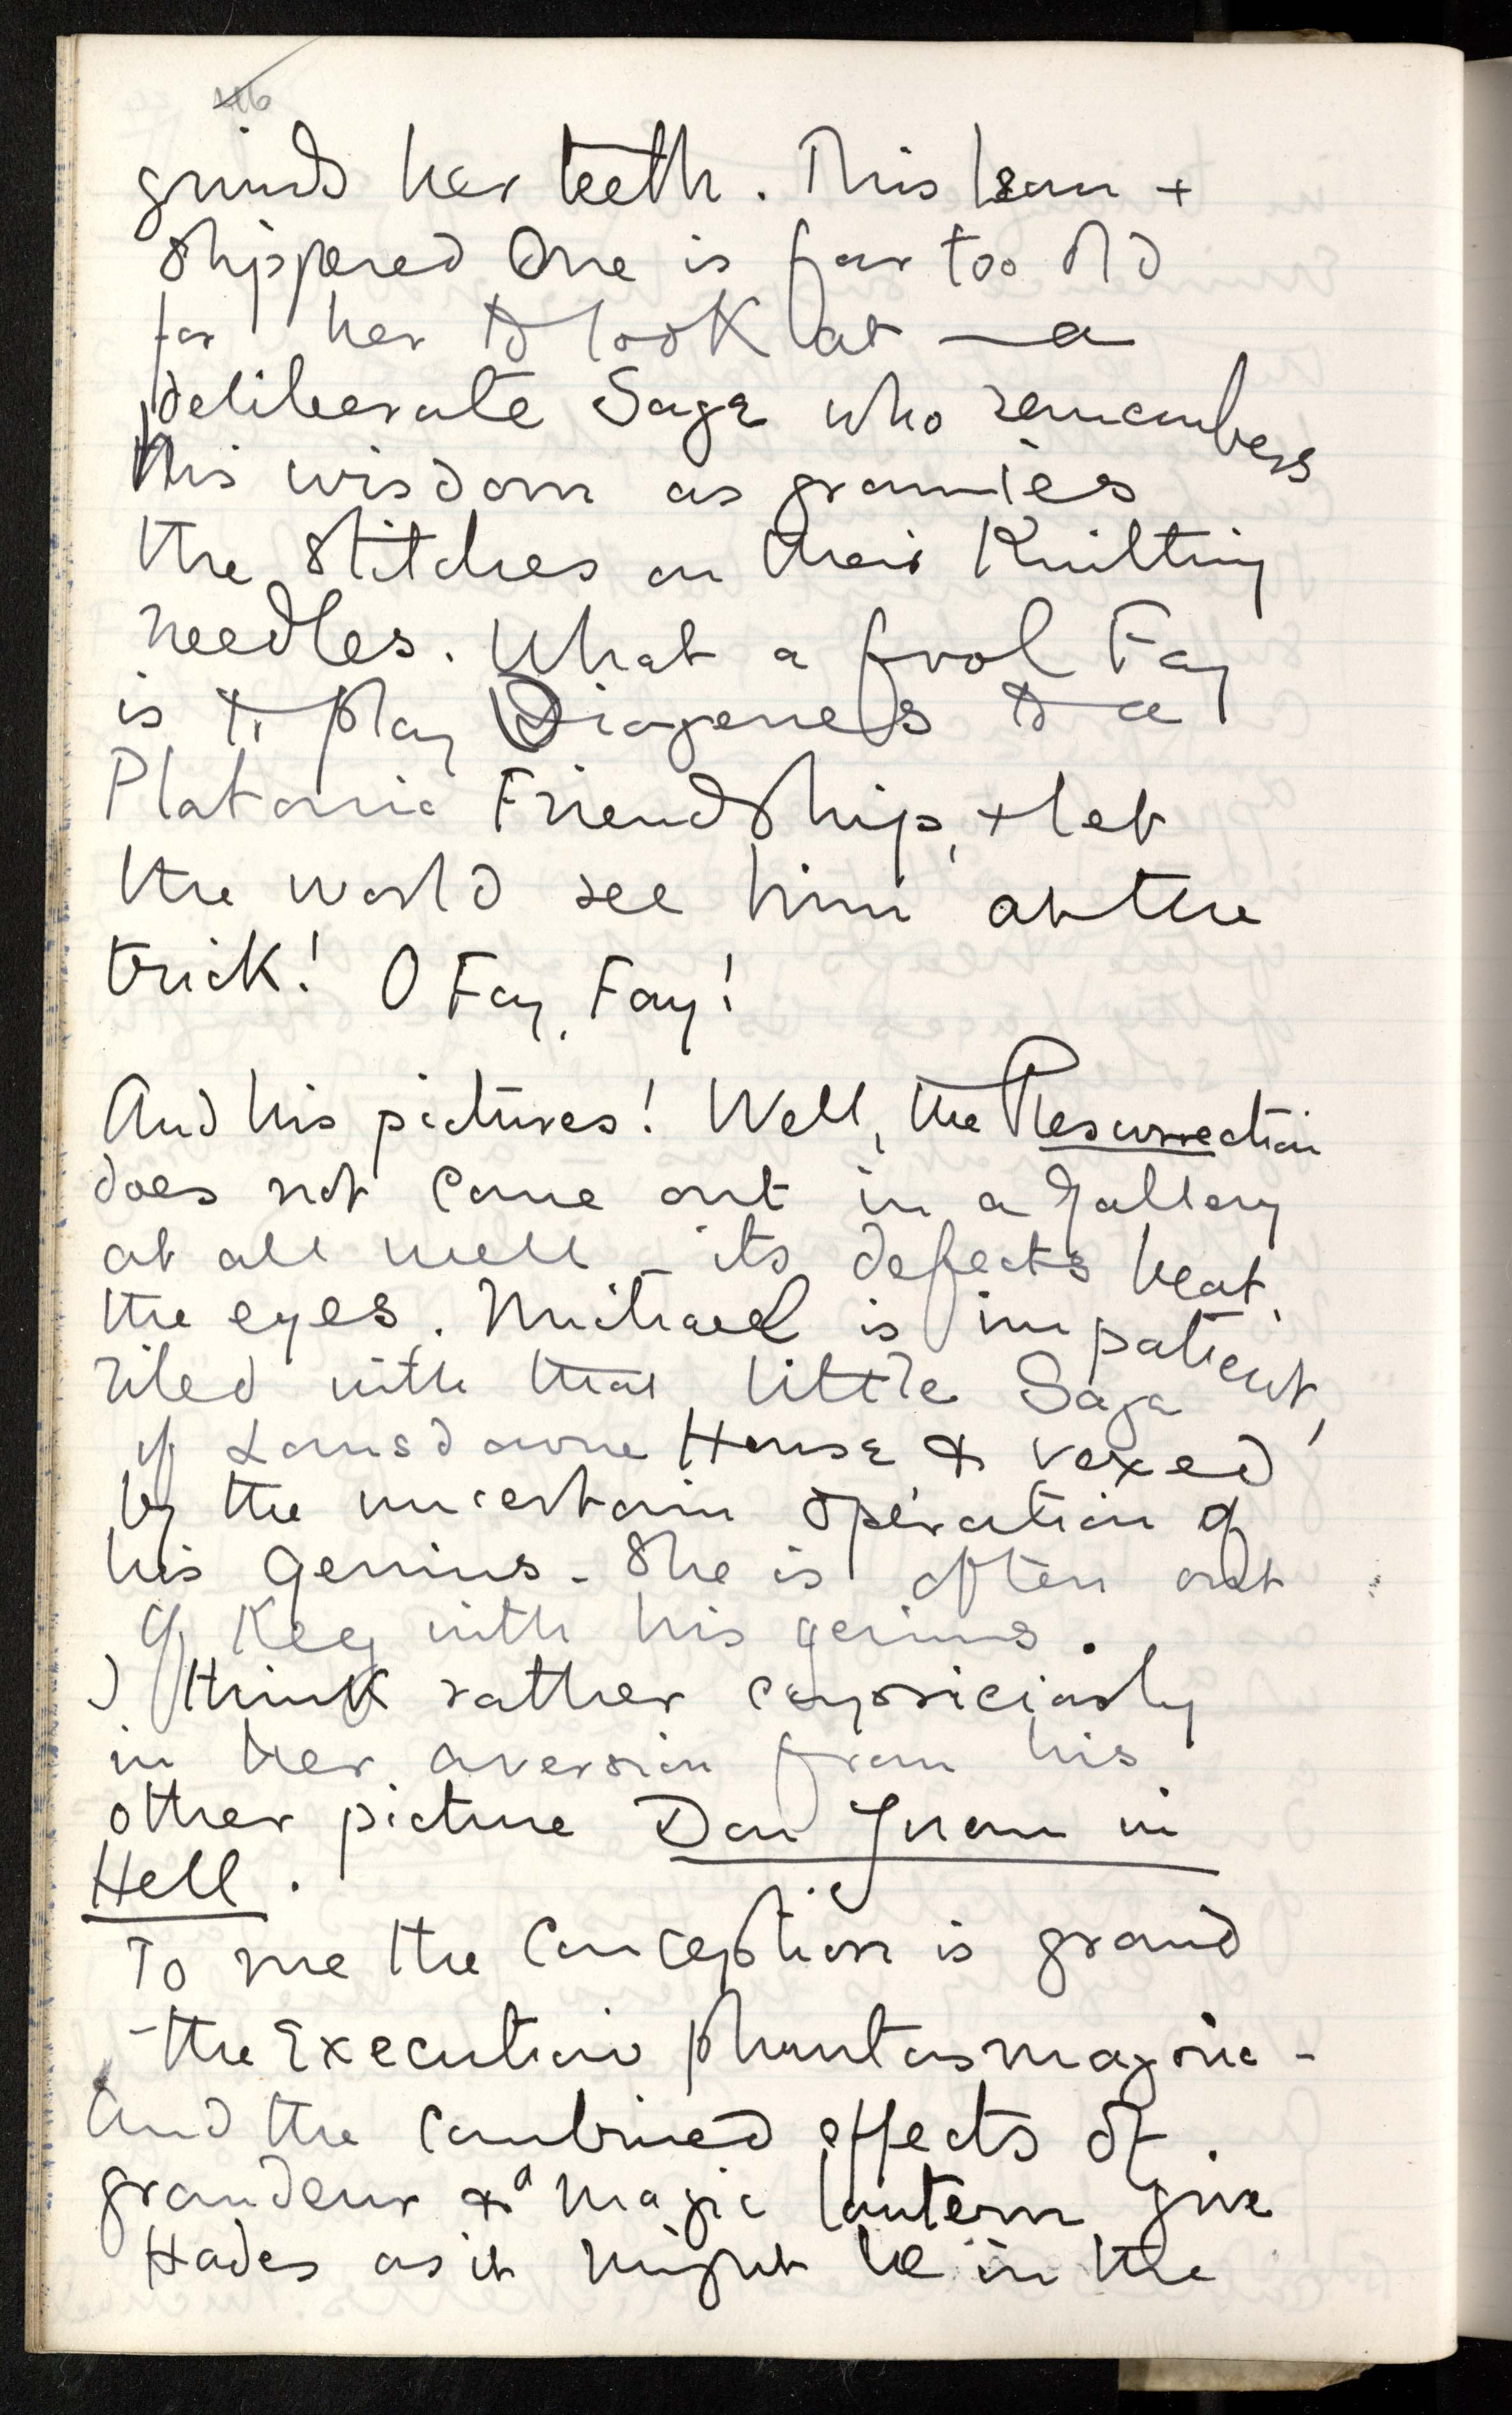 grinds her teeth. This lean +
slippered One is far too old
for her to look at — a
deliberate Sage who remembers
his wisdom as grannies
the stitches on their Knitting
needles. What a fool Fay
is to play Diogenes to a
Platonic Friendship, + let
the world see him at the
trick! O Fay, Fay!
And his pictures! Well, the Resurrection
does not come out in a gallery
at all well – its defects beat
the eyes. Michael is impatient,
riled with that little Sage
of Lansdowne House & vexed
by the uncertain operation of
his genius – She is often out
of Key with his genius.
I think rather capriciously
in her aversion from his
other picture Don Juan in
Hell.
To me the Conception is grand
– the Execution phantasmagoric –
And the combined effects of
grandeur & a magic lantern give
Hades as it might be in the